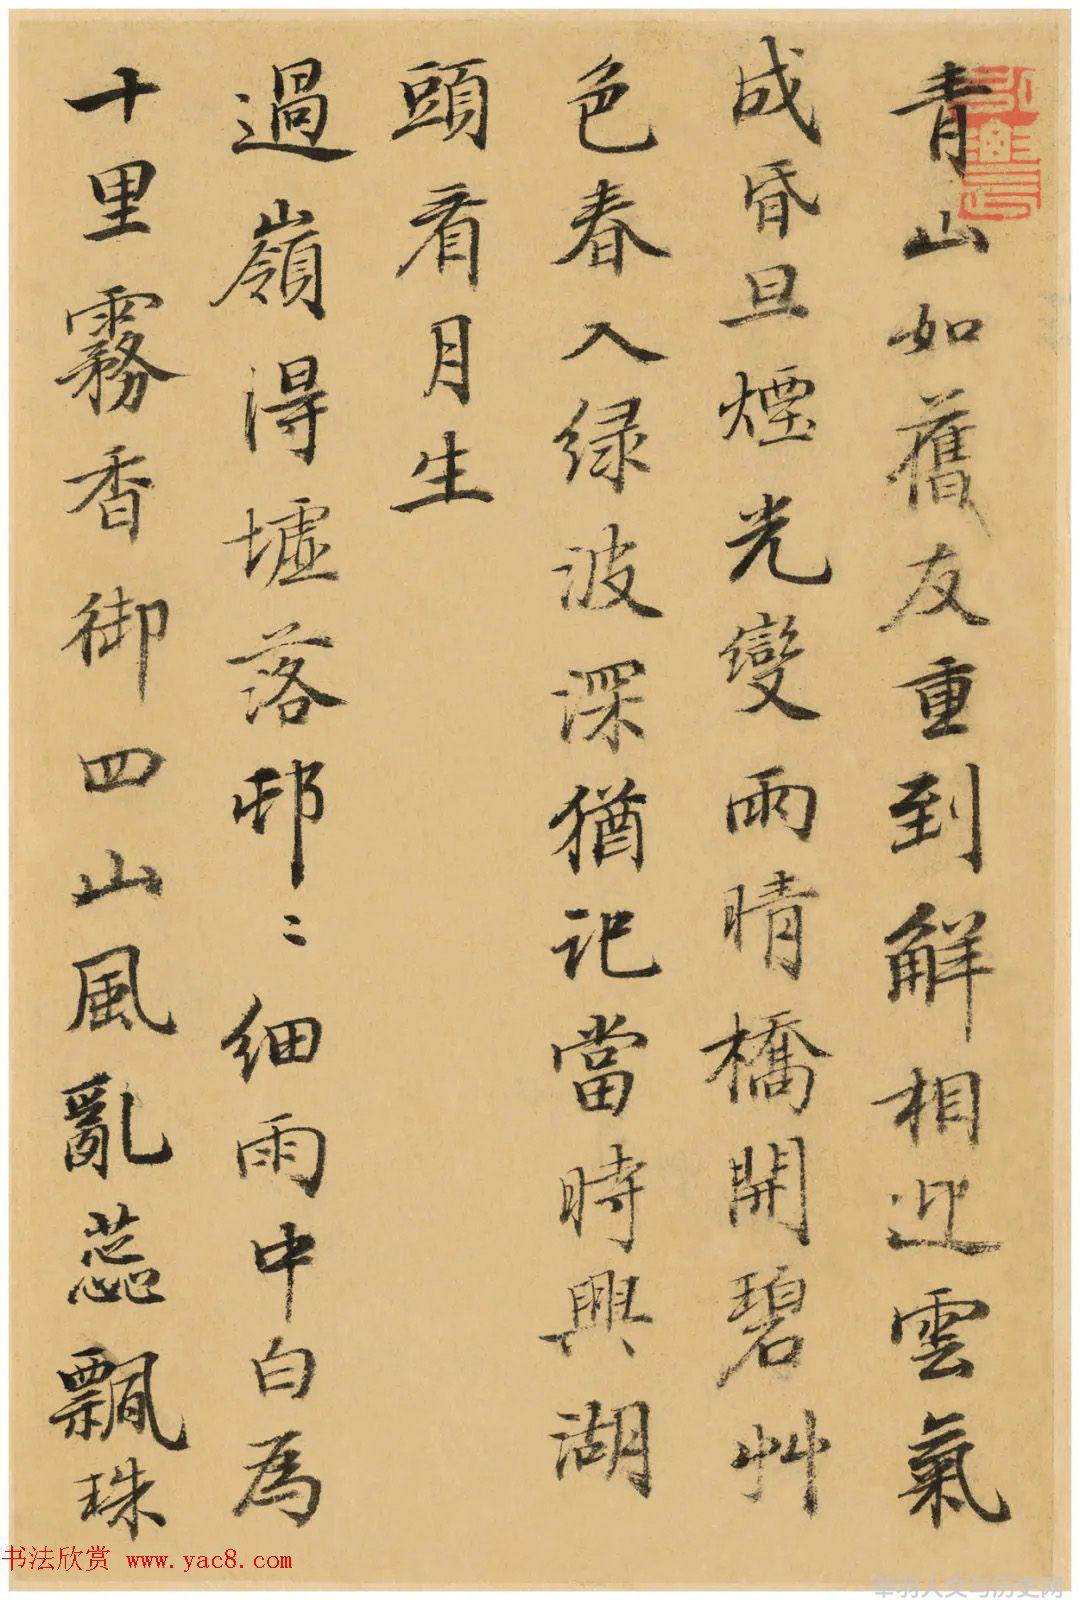 青山如舊友重到解相迎雲氣
成昏旦煙光變雨晴橋開碧艸
色春入绿波深猶記當時興湖
頭看月生
過嶺得墟落邨〻細雨中白為
十里霧香御四山風亂蕊飄珠
书法欣赏 www.yac8.com